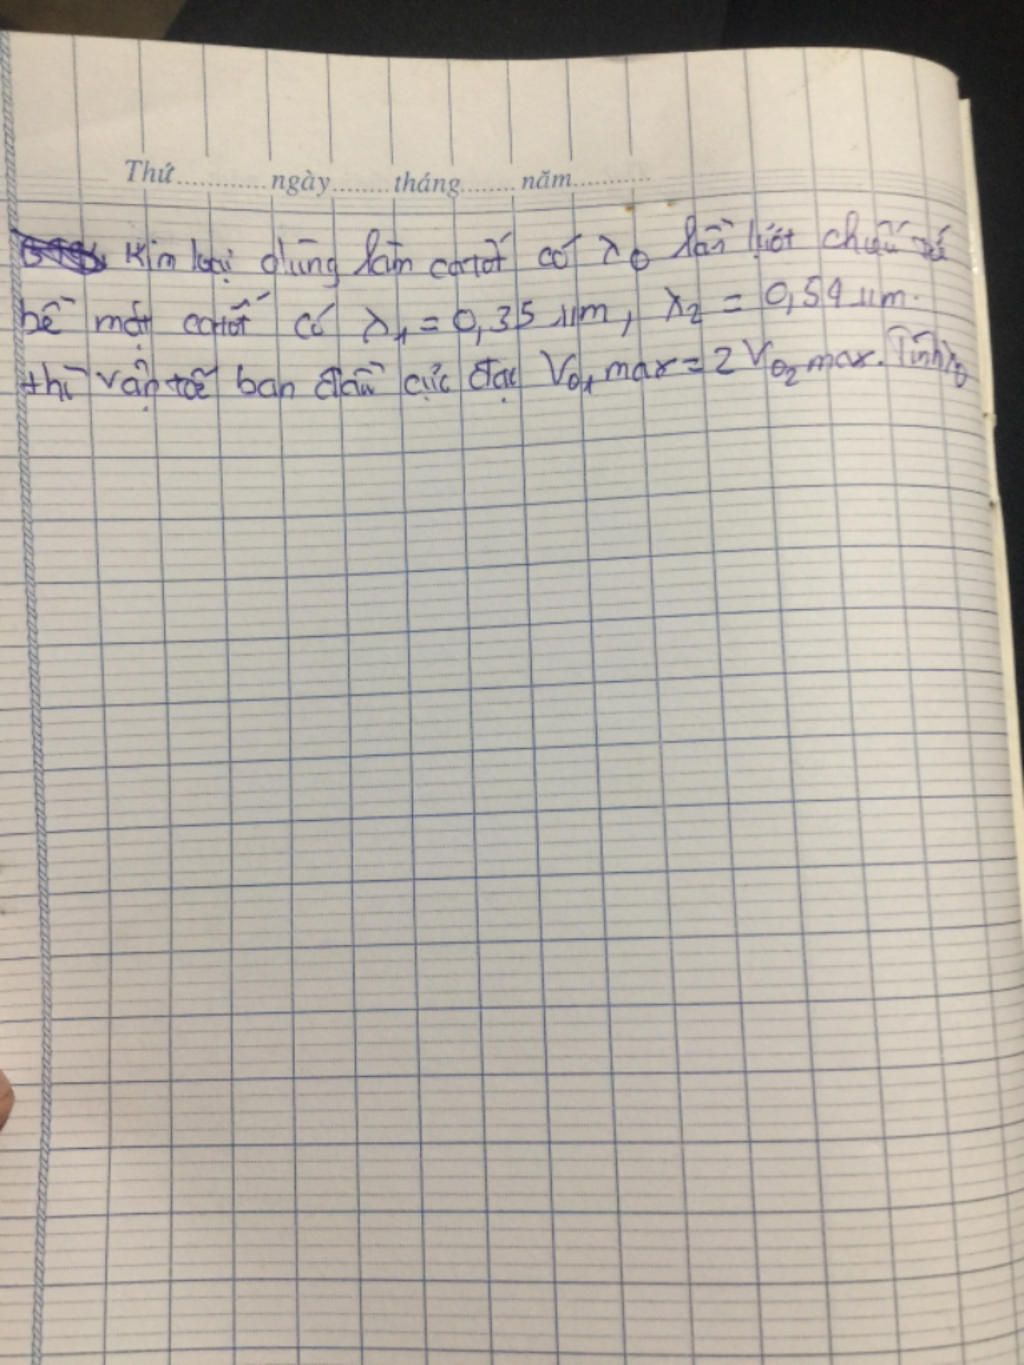 Thứ............ngày........tháng........năm...........
Kim loại dùng làm catốt có λ₀ lần lượt chiếu
bề mặt catốt có λ₁ = 0,35 µm, λ₂ = 0,54 µm.
thì vận tốc ban đầu cực đại V₀₁max = 2 V₀₂max. Tính λ₀